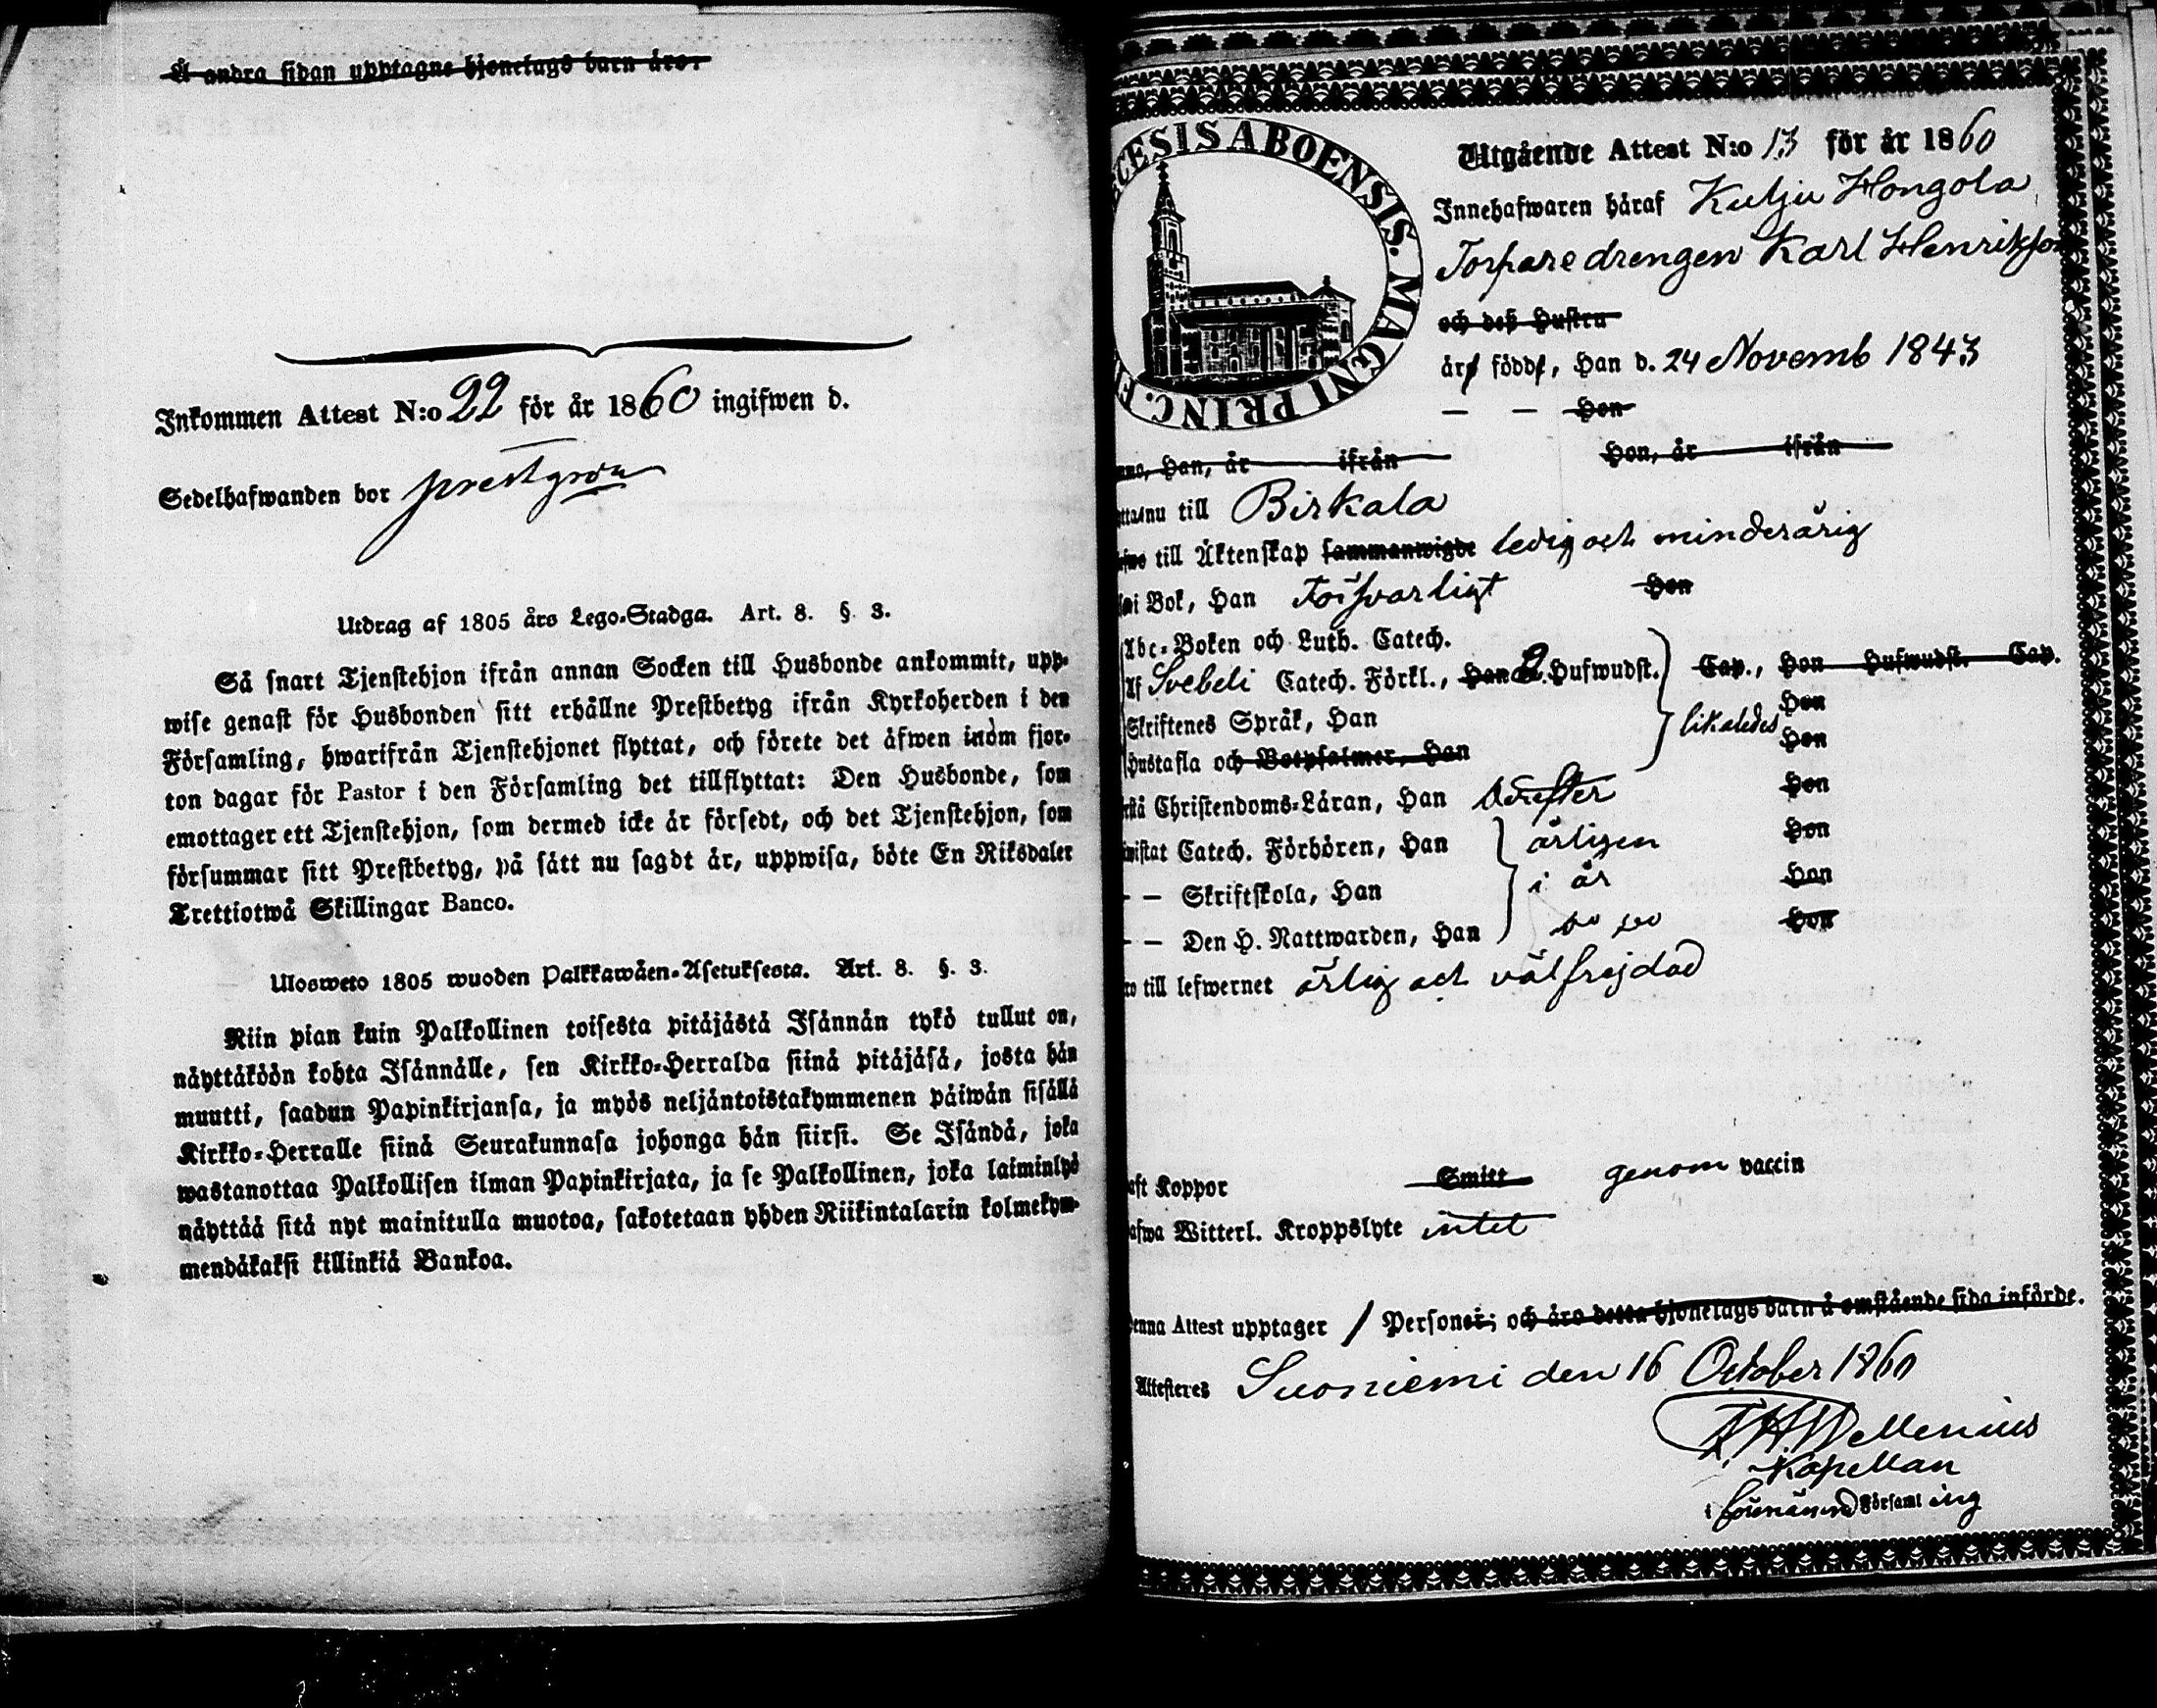 Å andra sidan upptagne hjonelags barn äro:
Inkommen Attest N:o 22 för år 1860 ingifwen d.
Sedelhafwanden bor
Utdrag af 1805 års Lego-Stadga. Art. 8. §. 3.
Så snart Tjenstehjon ifrån annan Socken till Husbonde ankommit, upp-
wise genast för Husbonden sitt erhållne Prestbetyg ifrån Kyrkoherden i den
Församling, hwarifrån Tjenstehjonet flyttat, och förete det äfwen inom fjor-
ton dagar för Pastor i den Församling det tillflyttat: Den Husbonde, som
emottager ett Tjenstehjon, som dermed icke är försedt, och det Tjenstehjon, som
försummar sitt Prestbetyg, på sätt nu sagdt är, uppwisa, böte En Riksdaler
Trettiotwå Skillingar Banco.
Ulosweto 1805 wuoden Palkkawäen-Asetuksesta. Art. 8. §. 3.
Niin pian kuin Palkollinen toisesta pitäjästä Isännän tykö tullut on,
näyttäköön kohta Isännälle, sen Kirkko-Herralda siinä pitäjäsä, josta hän
muutti, saadun Papinkirjansa, ja myös neljäntoistakymmenen päiwän sisällä
Kirkko-Herralle siinä Seurakunnasa johonga hän siirsi. Se Isändä, joka
wastanottaa Palkollisen ilman Papinkirjata, ja se Palkollinen, joka laiminlyö
näyttää sitä nyt mainitulla muotoa, sakotetaan yhden Riikintalarin kolmekym-
mendäkaksi killinkiä Bankoa.
CESIS ABOENSIS. MAGNI PRINC. F
Utgående Attest N:o 13 för år 1860
Innehafwaren häraf Kulju Hongola
Torparedrengen Karl Henriksson
och deß Hustru
är född, Han d. 24 Novemb 1843
— — Hon
Han, är ifrån Hon, är ifrån
nu till Birkala
till Äktenskap sammanwigde ledig och minderårig
i Bok, Han Försvarligt Hon
Abc-Boken och Luth. Catech.
Af Svebeli Catech. Förkl., Han 2 Hufwudst. Cap., Hon Hufwudst. Cap.
Skriftenes Språk, Han likaledes Hon
Hustafla och Botpsalmer, Han Hon
Christendoms-Läran, Han derefter Hon
Catech. Förhören, Han årligen Hon
— — Skriftskola, Han i år Hon
— — Den H. Nattwarden, Han Hon
till lefwernet ärlig och välfrejdad
haft Koppor Smitt genom vaccin
Witterl. Kroppslyte intet
Denna Attest upptager 1 Personer; och äro detta hjonelags barn å omstående sida införde.
Attesteres Suoniemi den 16 October 1860
Wellenius
Kapellan
i Församling